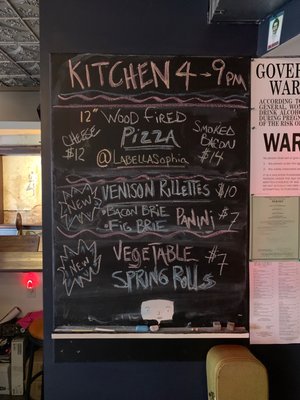 KITCHEN 4-9PM
12" WOOD FIRED
PIZZA
CHEESE
$12
SMOKED
BACON
$14
@LABELLASOPHIA
NEW!
VENISON RILLETTES $10
• BACON BRIE
• FIG BRIE
PANINI $7
NEW!
VEGETABLE
SPRING ROLLS
$7
GOVER
WAR
ACCORDING TO
GENERAL, WOM
DRINK ALCOHO
DURING PREGN
OF THE RISK OF
WAR